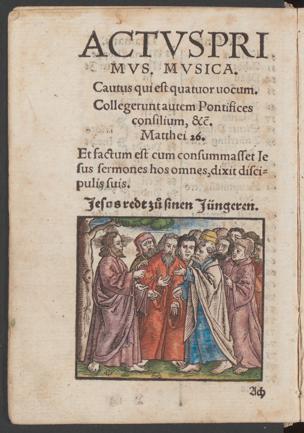 ACTVS PRI
MVS. MVSICA.
Cautus qui est quatuor uocum.
Collegerunt autem Pontifices
consilium, &c̄.
Matthei 26.
Et factum est cum consummasset Ie
sus sermones hos omnes, dixit disci-
pulis suis.
Jesos redt zů sinen Jüngeren.
Ach